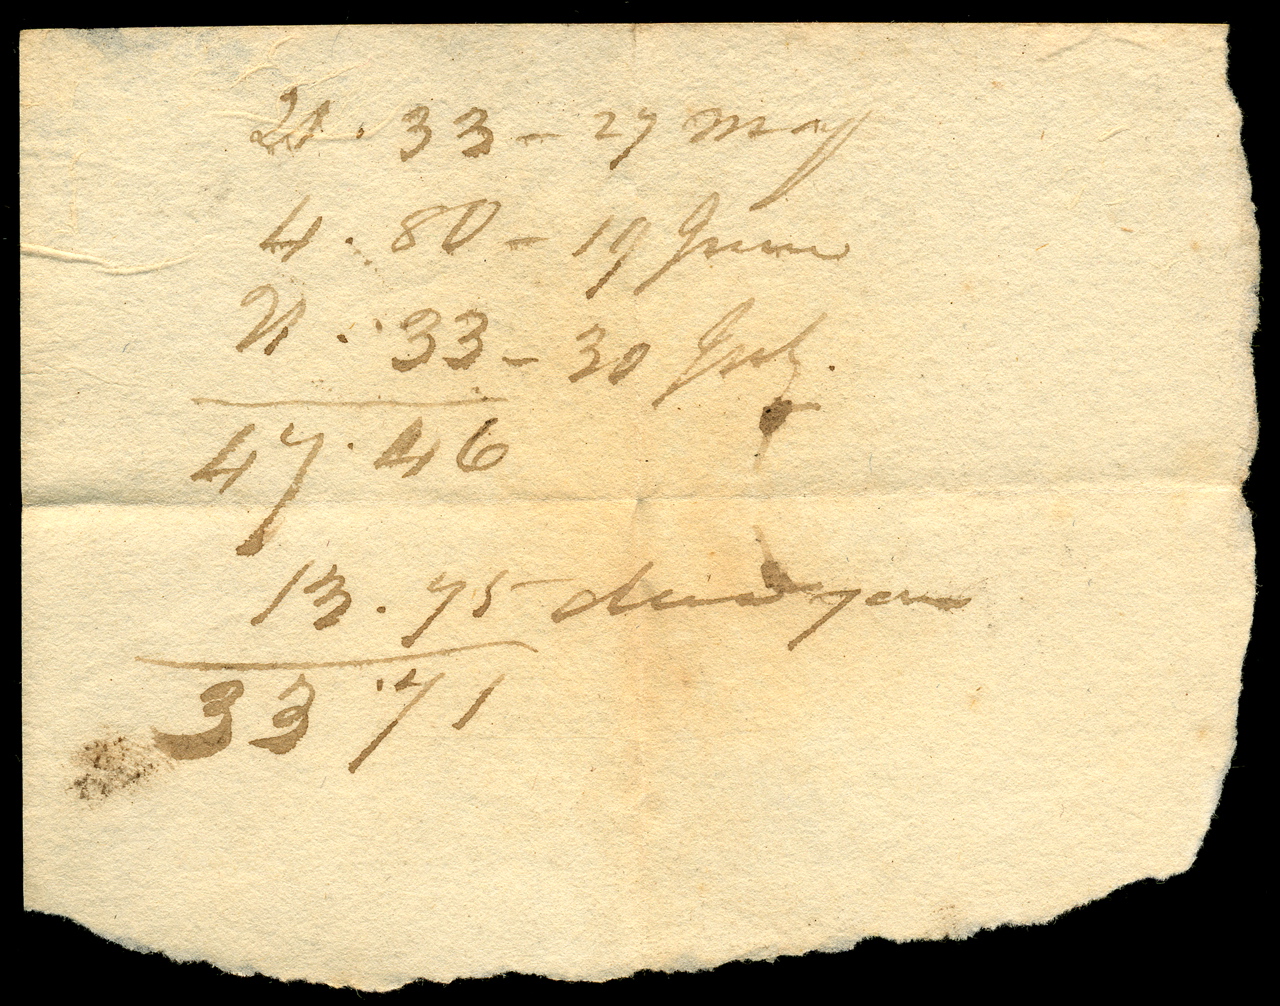 21 . 33 - 27 May
4 . 80 - 19 June
21 . 33 - 30 July.
47 . 46
13 . 75
33 . 71